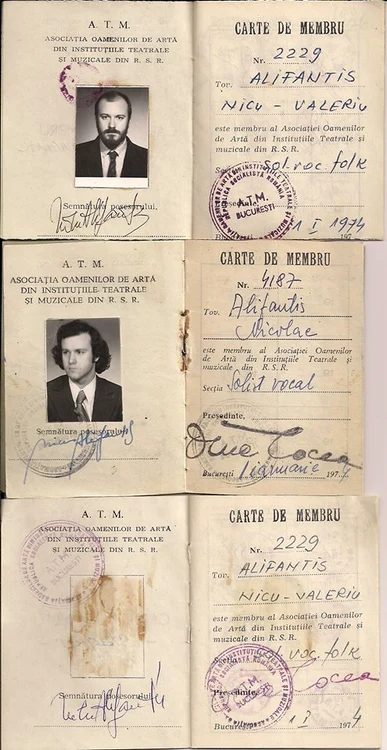 A. T. M.
ASOCIAȚIA OAMENILOR DE ARTĂ
DIN INSTITUȚIILE TEATRALE
ȘI MUZICALE DIN R. S. R.
Semnătura posesorului,
CARTE DE MEMBRU
Nr. 2229
Tov. ALIFANTIS
NICU - VALERIU
este membru al Asociației Oamenilor
de Artă din Instituțiile Teatrale și
muzicale din R.S.R.
Sol. voc. folk
A.T.M.
BUCUREȘTI
1 I 1974
A. T. M.
ASOCIAȚIA OAMENILOR DE ARTĂ
DIN INSTITUȚIILE TEATRALE
ȘI MUZICALE DIN R. S. R.
Semnătura posesorului,
CARTE DE MEMBRU
Nr. 4187
Tov. Alifantis
Nicolae
este membru al Asociației Oamenilor
de Artă din Instituțiile Teatrale și
muzicale din R.S.R.
Secția Solist vocal
Președinte,
Dina Cocea
București 1 ianuarie 197
A. T. M.
ASOCIAȚIA OAMENILOR DE ARTĂ
DIN INSTITUȚIILE TEATRALE
ȘI MUZICALE DIN R. S. R.
Semnătura posesorului,
CARTE DE MEMBRU
Nr. 2229
Tov. ALIFANTIS
NICU - VALERIU
este membru al Asociației Oamenilor
de Artă din Instituțiile Teatrale și
muzicale din R.S.R.
voc. folk
Președinte,
Cocea
București 1 I 1974